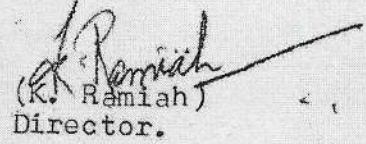 K. Ramiah
(K. Ramiah)
Director.